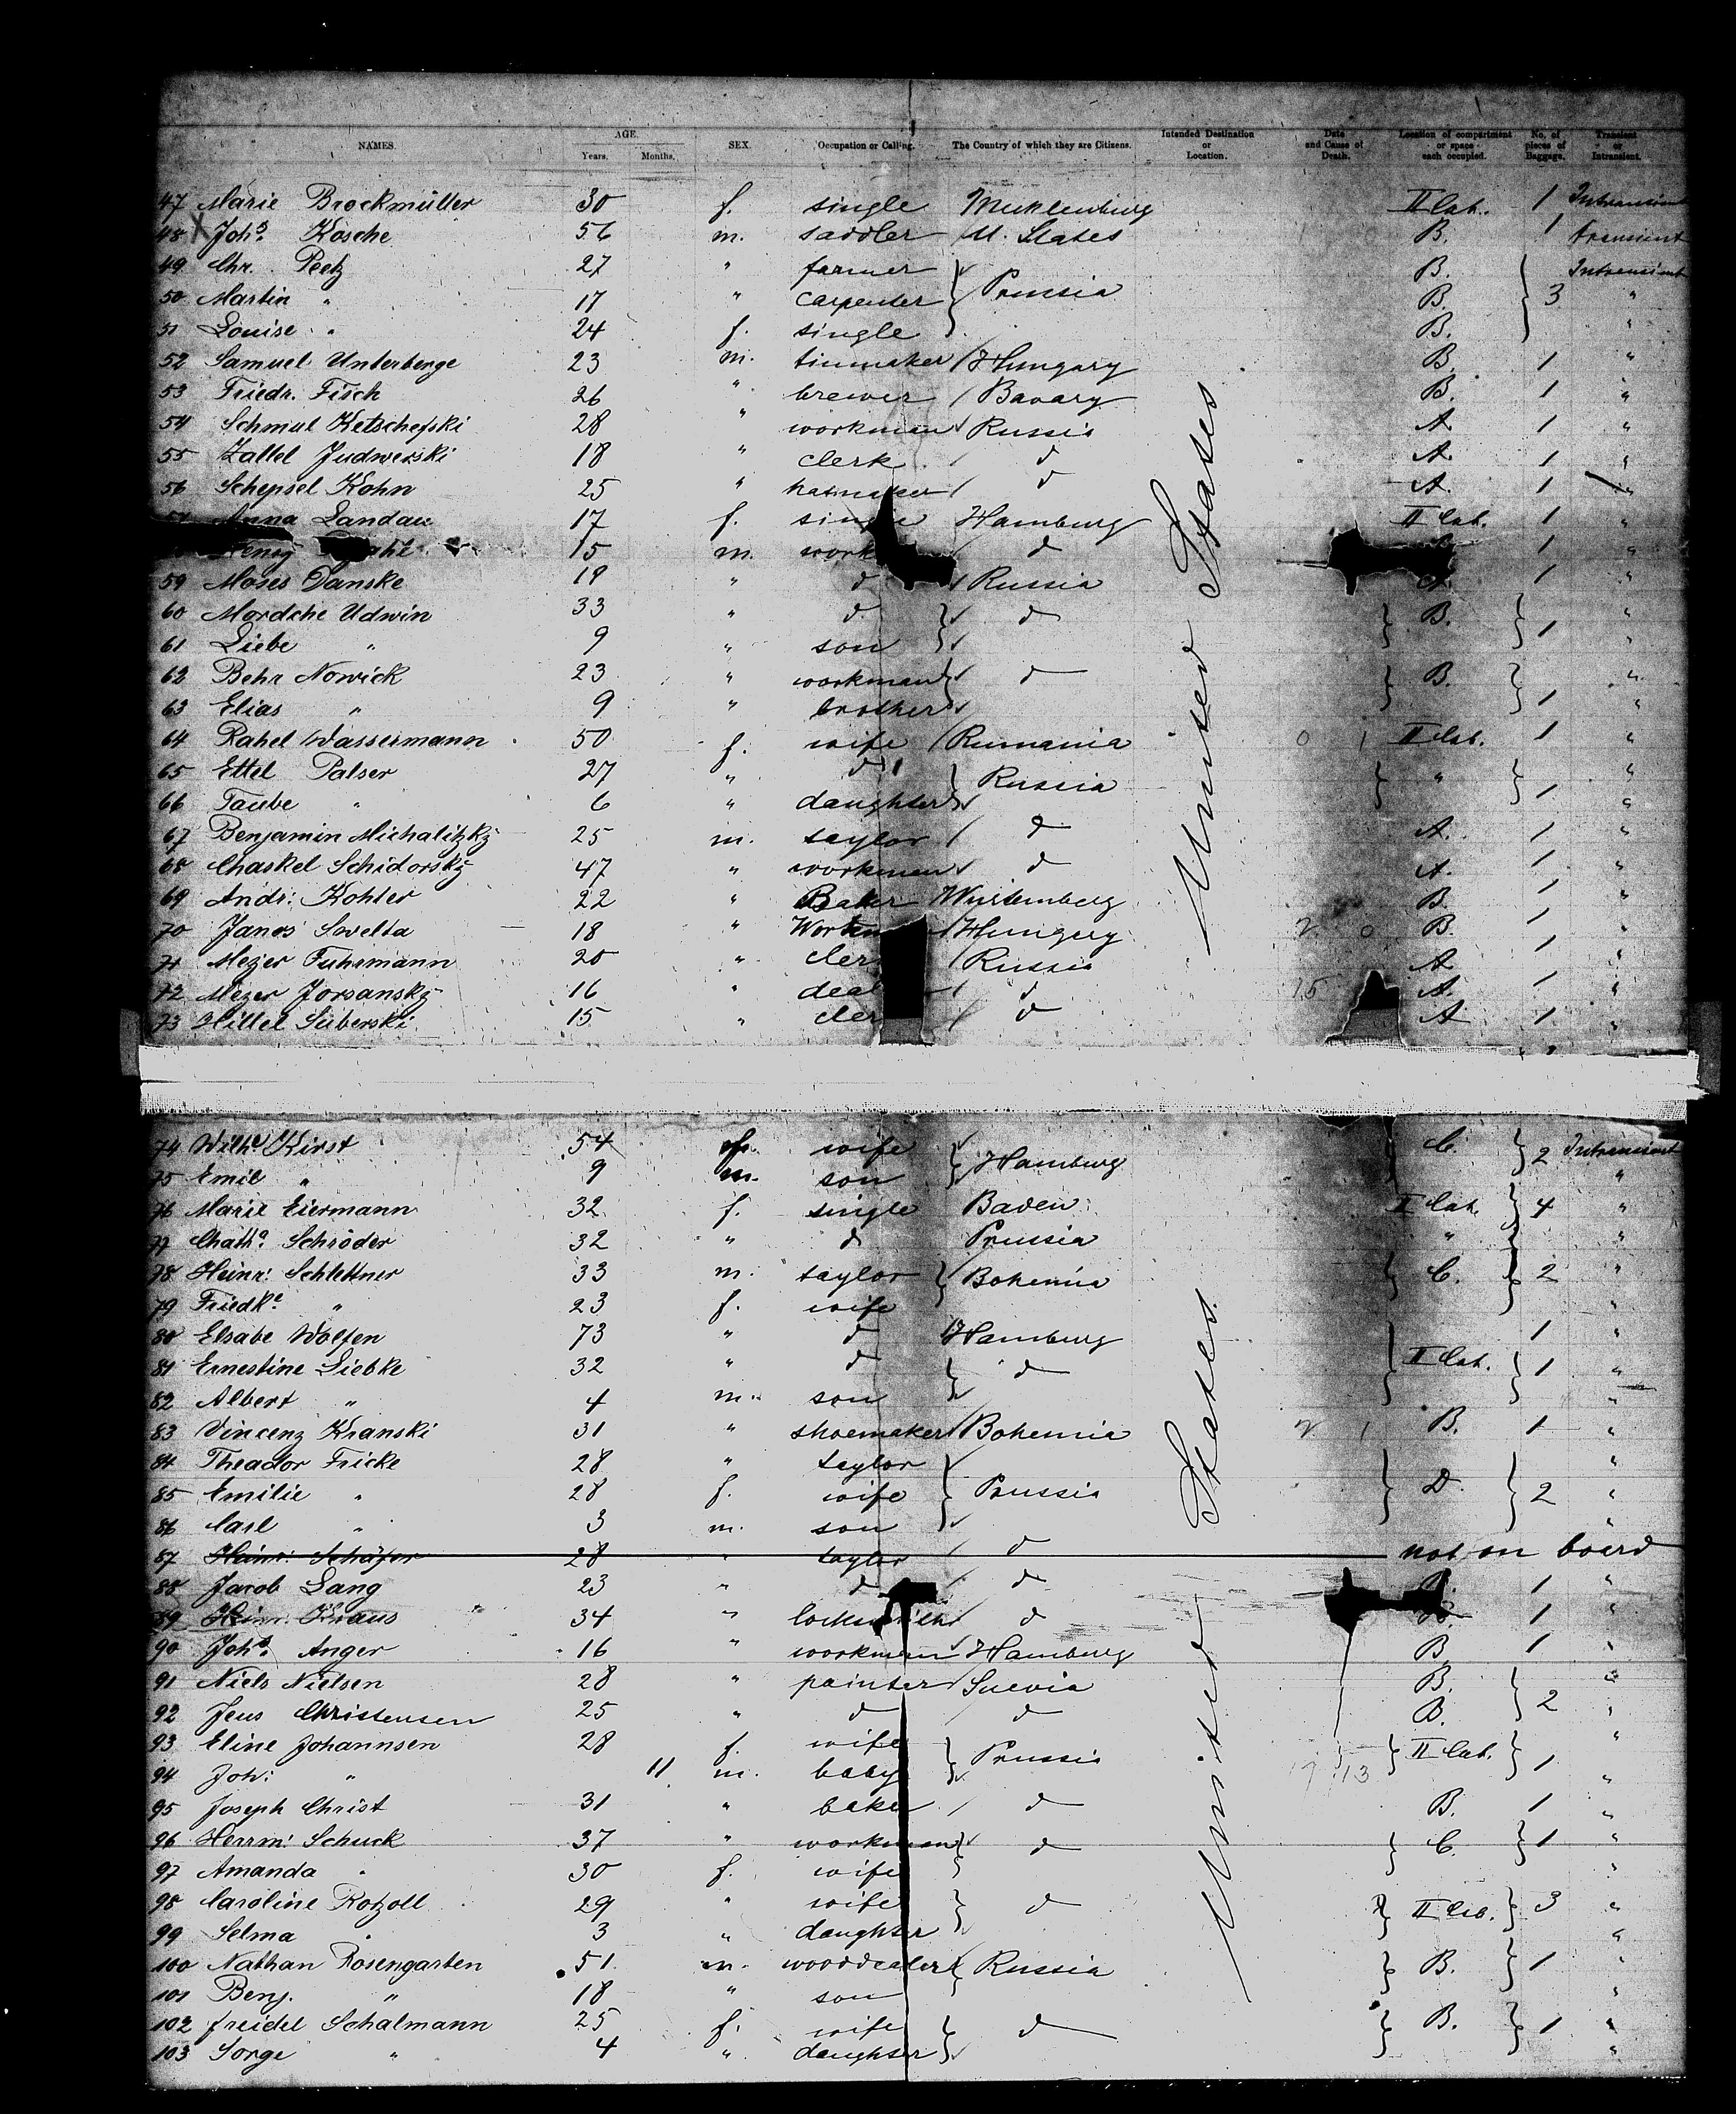 NAMES. AGE. Years. Months. SEX. Occupation or Calling. The Country of which they are Citizens. Intended Destination or Location. Date and Cause of Death. Location of compartment or space each occupied. No. of pieces of Baggage. Transient or Intransient.
47 Marie Brockmüller 30 f. single Mecklenburg II Cab. 1 Intransient
48 X Johs. Kosche 56 m. saddler U. States B. 1 transient
49 Chr. Peetz 27 " farmer B. Intransient
50 Martin " 17 " carpenter } Prussia B. } 3 "
51 Louise " 24 f. single B. "
52 Samuel Unterberge 23 m. tinmaker / Hungary B. 1 "
53 Friedr. Fisch 26 " brewer / Bavary B. 1 "
54 Schmul Ketschefski 28 " workman Russia A. 1 "
55 Zallel Judwerski 18 " clerk / d A. 1 "
56 Schepsel Kohn 25 " hatmaker / d A. 1 "
57 Anna Landau 17 f. single Hamburg II Cab. 1 "
Henry 15 m. work / d 1 "
59 Moses Danske 19 " d / Russia A. 1 "
60 Mordche Udwin 33 " d } d } B. } "
61 Liebe " 9 " son 1 "
62 Behr Nowick 23 " workman } d } B. } "
63 Elias " 9 " brother 1 "
64 Rahel Wassermann 50 f. wife / Rumania 0 1 II Cab. 1 "
65 Ettel Palser 27 " d } Russia } " } "
66 Taube " 6 " daughter 1 "
67 Benjamin Michalitzky 25 m. taylor / d A. 1 "
68 Chaskel Schidorsky 47 " workman / d A. 1 "
69 Andr: Kohler 22 " Baker Würtemberg B. 1 "
70 Janos Sovelta 18 " Workm / Hungery 2 0 B. 1 "
71 Mejer Fuhrmann 20 " cler / Russia A. 1 "
72 Mezer Jorsansky 16 " deal / d 15 A. 1 "
73 Hillel Suberski 15 " cler / d A 1 "
United States
74 Wilhe Kirst 54 f. wife } Hamburg C. } 2 Intransient
75 Emil " 9 m. son "
76 Marie Eiermann 32 f. single Baden II Cab. } 4 "
77 Catha. Schröder 32 " d Prussia " "
78 Heinr: Schlettner 33 m. taylor } Bohemia } C. } 2 "
79 Friedke " 23 f. wife "
80 Elsabe Wolfen 73 " d Hamburg 1 "
81 Ernestine Liebke 32 " d } d II Cab. } 1 "
82 Albert " 4 m. son "
83 Vincenz Kranski 31 " shoemaker / Bohemia 2 1 B. 1 "
84 Theador Fricke 28 " taylor "
85 Emilie " 28 f. wife } Prussia } D. } 2 "
86 Carl " 3 m. son "
87 Heinr: Schäfer 28 " taylor d not on board
88 Jacob Lang 23 " d / d 1 "
89 Heinr: Kraus 34 " locksmith / d 1 "
90 Johs. Anger 16 " workman / Hamburg B. 1 "
91 Niels Nielsen 28 " painter / Suevia B. "
92 Jens Christensen 25 " d / d B. } 2 "
93 Eline Johannsen 28 f. wife } Prussia } II Cab. } "
94 Joh: " 11 m. baby 1 "
95 Joseph Christ 31 " baker / d B. 1 "
96 Herrm: Schuck 37 " workman } d } C. } 1 "
97 Amanda " 30 f. wife "
98 Caroline Rotzoll 29 " wife } d } II Cab. } 3 "
99 Selma " 3 " daughter "
100 Nathan Rosengarten 51 m. wooddealer } Russia } B. } 1 "
101 Benj. " 18 " son "
102 Freidel Schalmann 25 f. wife } d } B. } 1 "
103 Sorge " 4 " daughter "
United States